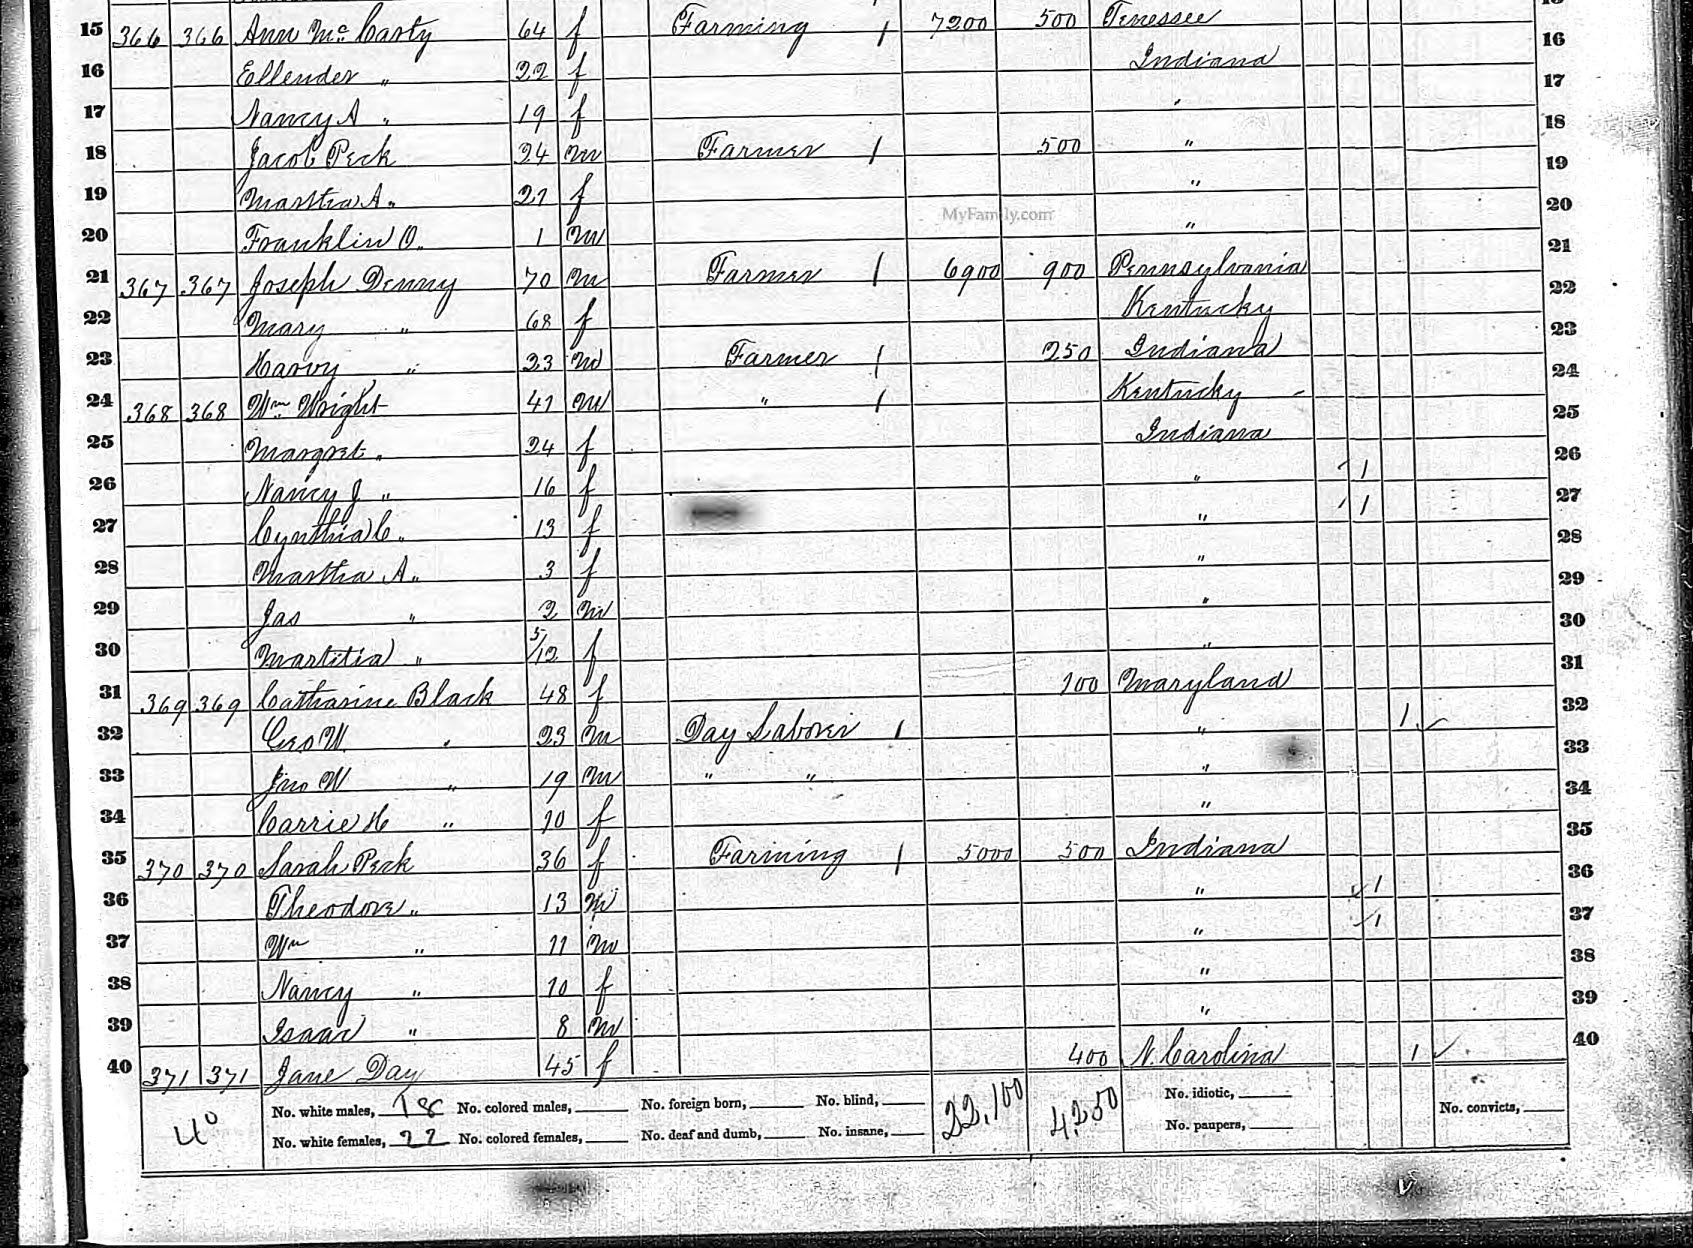 15 366 366 Ann McCarty 64 f Farming 1 7200 500 Tenessee 15
16 Ellender " 22 f Indiana 16
17 Nancy A " 19 f " 17
18 Jacob Peck 24 m Farmer 1 500 " 18
19 Martha A " 21 f " 19
20 Franklin O. 1 m " 20
MyFamily.com
21 367 367 Joseph Denny 70 m Farmer 1 6900 900 Pennsylvania 21
22 Mary " 68 f Kentucky 22
23 Harvy " 23 m Farmer 1 250 Indiana 23
24 368 368 Wm Wright 41 m " 1 Kentucky - 24
25 Margret " 24 f Indiana 25
26 Nancy J " 16 f " 1 26
27 Cynthia C " 13 f " 1 27
28 Martha A " 3 f " 28
29 Jas " 2 m " 29
30 Martitia " 5/12 f " 30
31 369 369 Catharine Black 48 f 100 Maryland 31
32 Geo W " 23 m Day Laborer 1 " 1 ✓ 32
33 Jno W " 19 m " " " 33
34 Carrie H " 10 f " 34
35 370 370 Sarah Peck 36 f Farming 1 5000 500 Indiana 35
36 Theodore " 13 m " ✓ 1 36
37 Wm " 11 m " ✓ 1 37
38 Nancy " 10 f " 38
39 Isaac " 8 m " 39
40 371 371 Jane Day 45 f 400 N. Carolina 1 ✓ 40
40 No. white males, 18 No. colored males, No. foreign born, No. blind, 22,100 4250 No. idiotic, No. convicts,
No. white females, 22 No. colored females, No. deaf and dumb, No. insane, No. paupers,